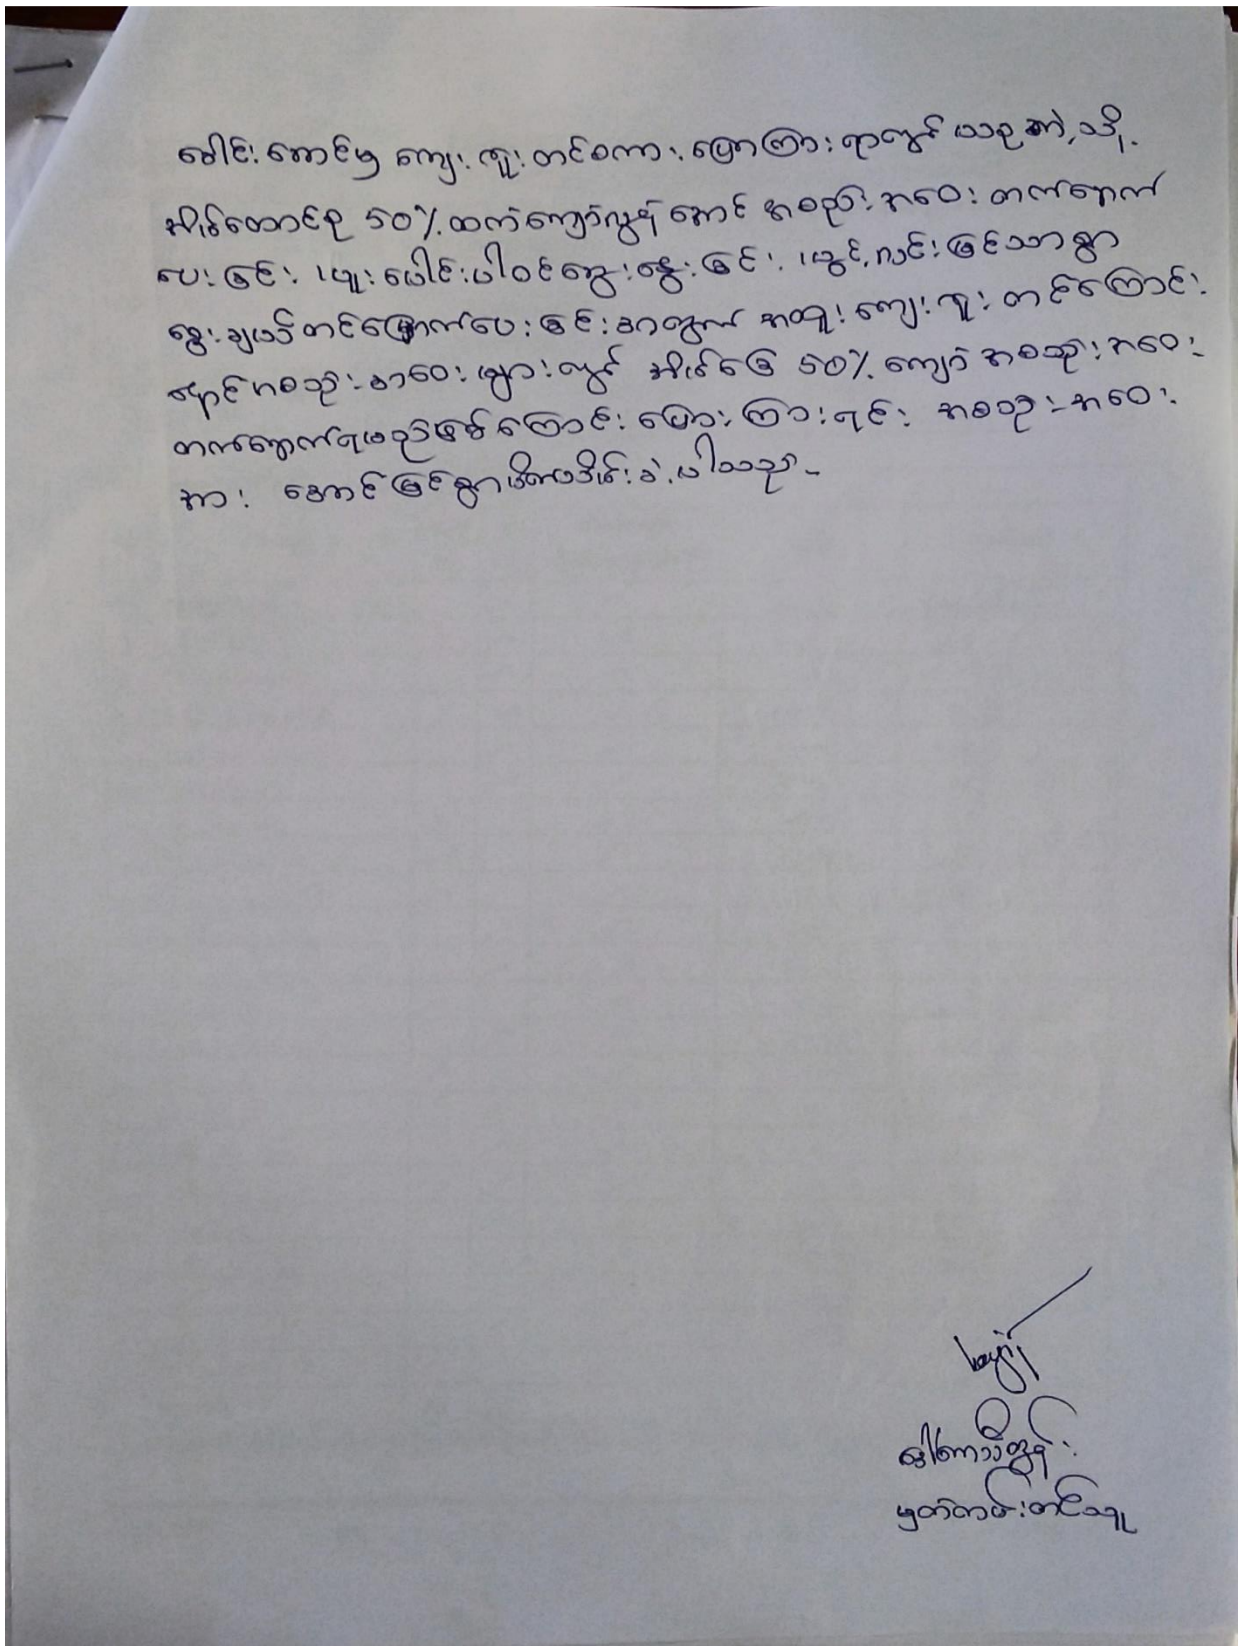 ခေါင်းဆောင်မှ ကျေးဇူးတင်စကား ပြောကြားရာတွင် ယခုကဲ့သို့
အိမ်ထောင်စု 50% ထက်ကျော်လွန်အောင် အစည်းအဝေး တက်ရောက်
ပေးခြင်း၊ ပူးပေါင်းပါဝင်ဆွေးနွေးခြင်း၊ ပွင့်လင်းမြင်သာစွာ
ရွေးချယ်တင်မြှောက်ပေးခြင်းအတွက် အထူး ကျေးဇူး တင်ကြောင်း
နှောင်အစည်းအဝေးများတွင် အိမ်ခြေ 50% ကျော် အစည်းအဝေး
တက်ရောက်ရမည်ဖြစ်ကြောင်း ပြောကြားရင်း အစည်းအဝေး
အား အောင်မြင်စွာ ရုပ်သိမ်းခဲ့ပါသည်။
မှတ်တမ်းတင်သူ